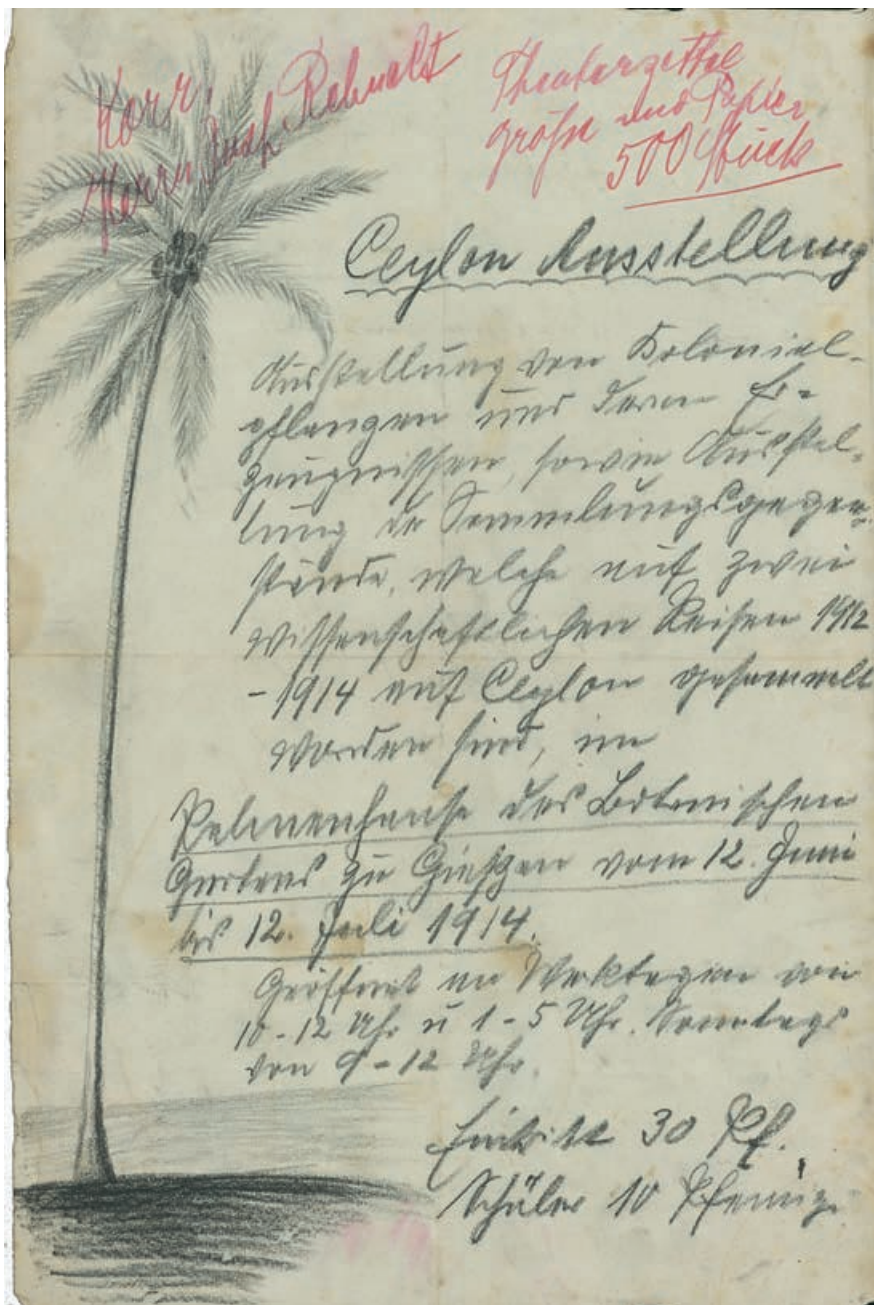 Korr.
Herrn Rehnelt
Theaterzettel
größe und Papier
500 Stück
Ceylon Ausstellung
Ausstellung von Kolonial-
pflanzen und deren Er-
zeugnissen, sowie Ausstel-
lung der Sammlungsgegen-
stände, welche auf zwei
wissenschaftlichen Reisen 1912
-1914 auf Ceylon gesammelt
worden sind, im
Palmenhause des Botanischen
Gartens zu Gießen vom 12. Juni
bis 12. Juli 1914.
Geöffnet an Werktagen von
10-12 Uhr u 1-5 Uhr. Sonntags
von 9-12 Uhr.
Eintritt 30 Pf.
Schüler 10 Pfennig.